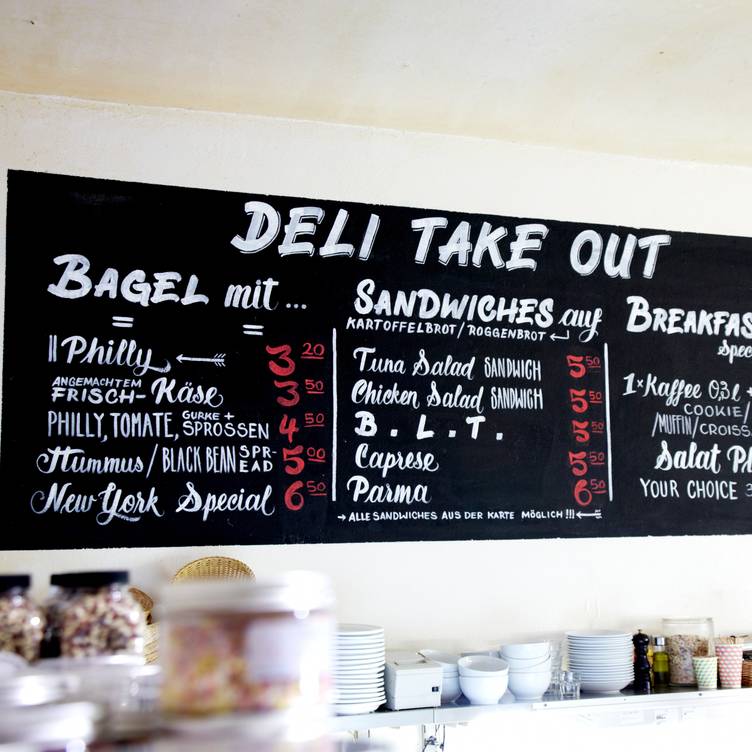 DELI TAKE OUT
BAGEL mit ...
"Philly 3 20
ANGEMACHTEM FRISCH-Käse 3 50
PHILLY, TOMATE, GURKE + SPROSSEN 4 50
Hummus / BLACK BEAN SPREAD 5 00
New York Special 6 50
SANDWICHES auf
KARTOFFELBROT/ROGGENBROT
Tuna Salad SANDWICH 5 50
Chicken Salad SANDWICH 5 50
B.L.T. 5 50
Caprese 5 50
Parma 6 50
→ ALLE SANDWICHES AUS DER KARTE MÖGLICH !!! ←
BREAKFAS
Spec
1x Kaffee 0,3l +
COOKIE/
/MUFFIN/CROISS
Salat
YOUR CHOICE 3